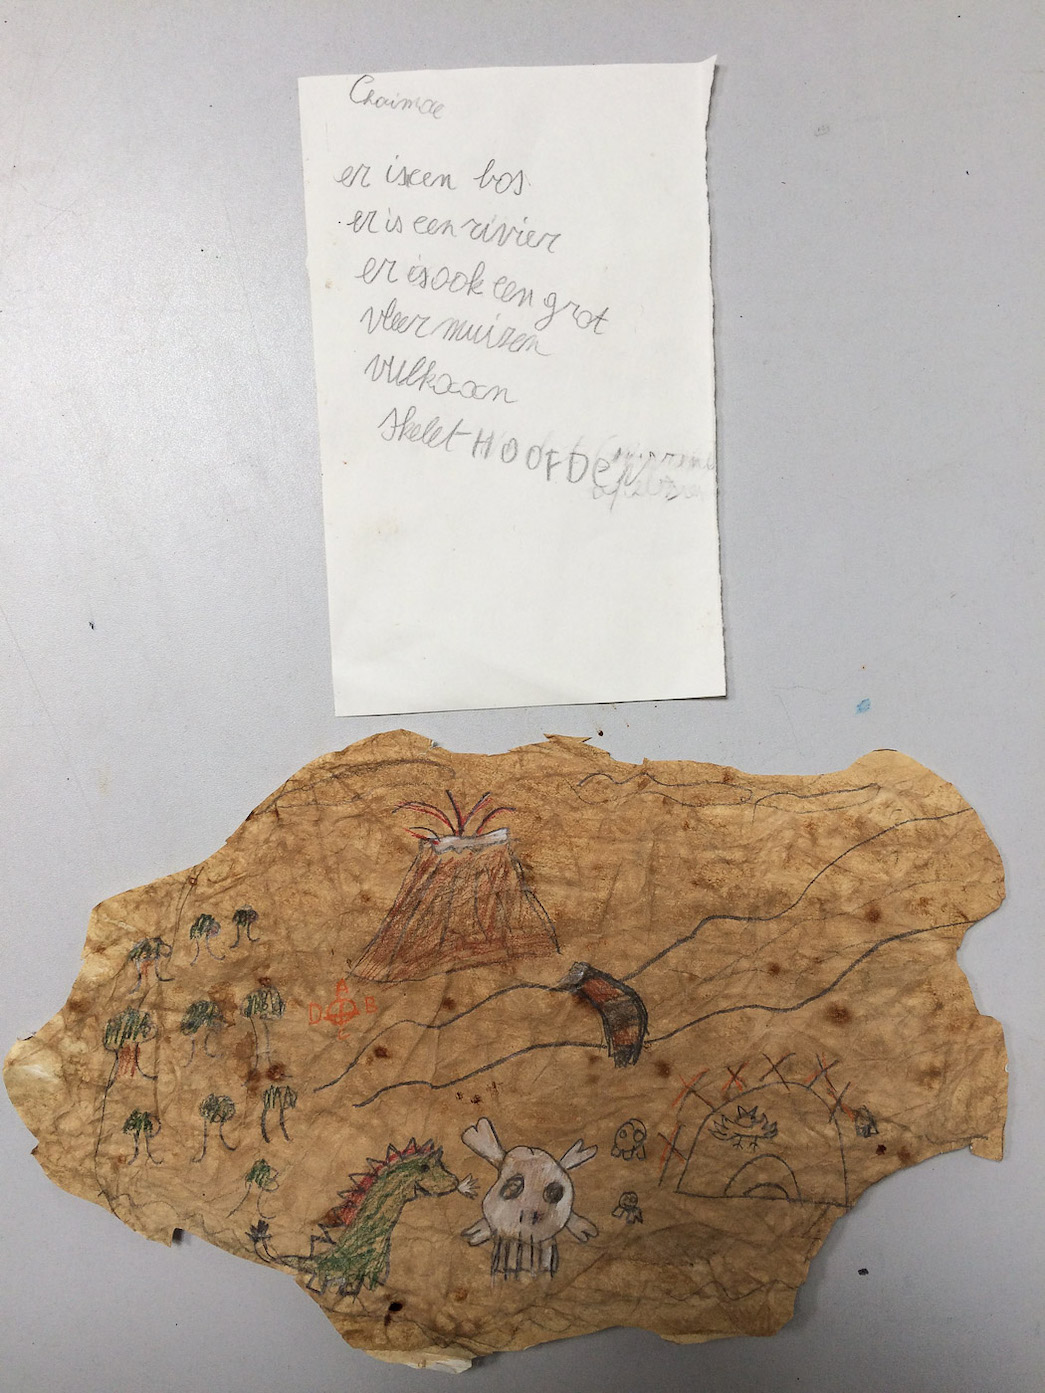 Chaimae
er is een bos.
er is een rivier
er is ook een grot
vleermuizen
vulkaaan
skelet HOOFDEN
A
D B
C